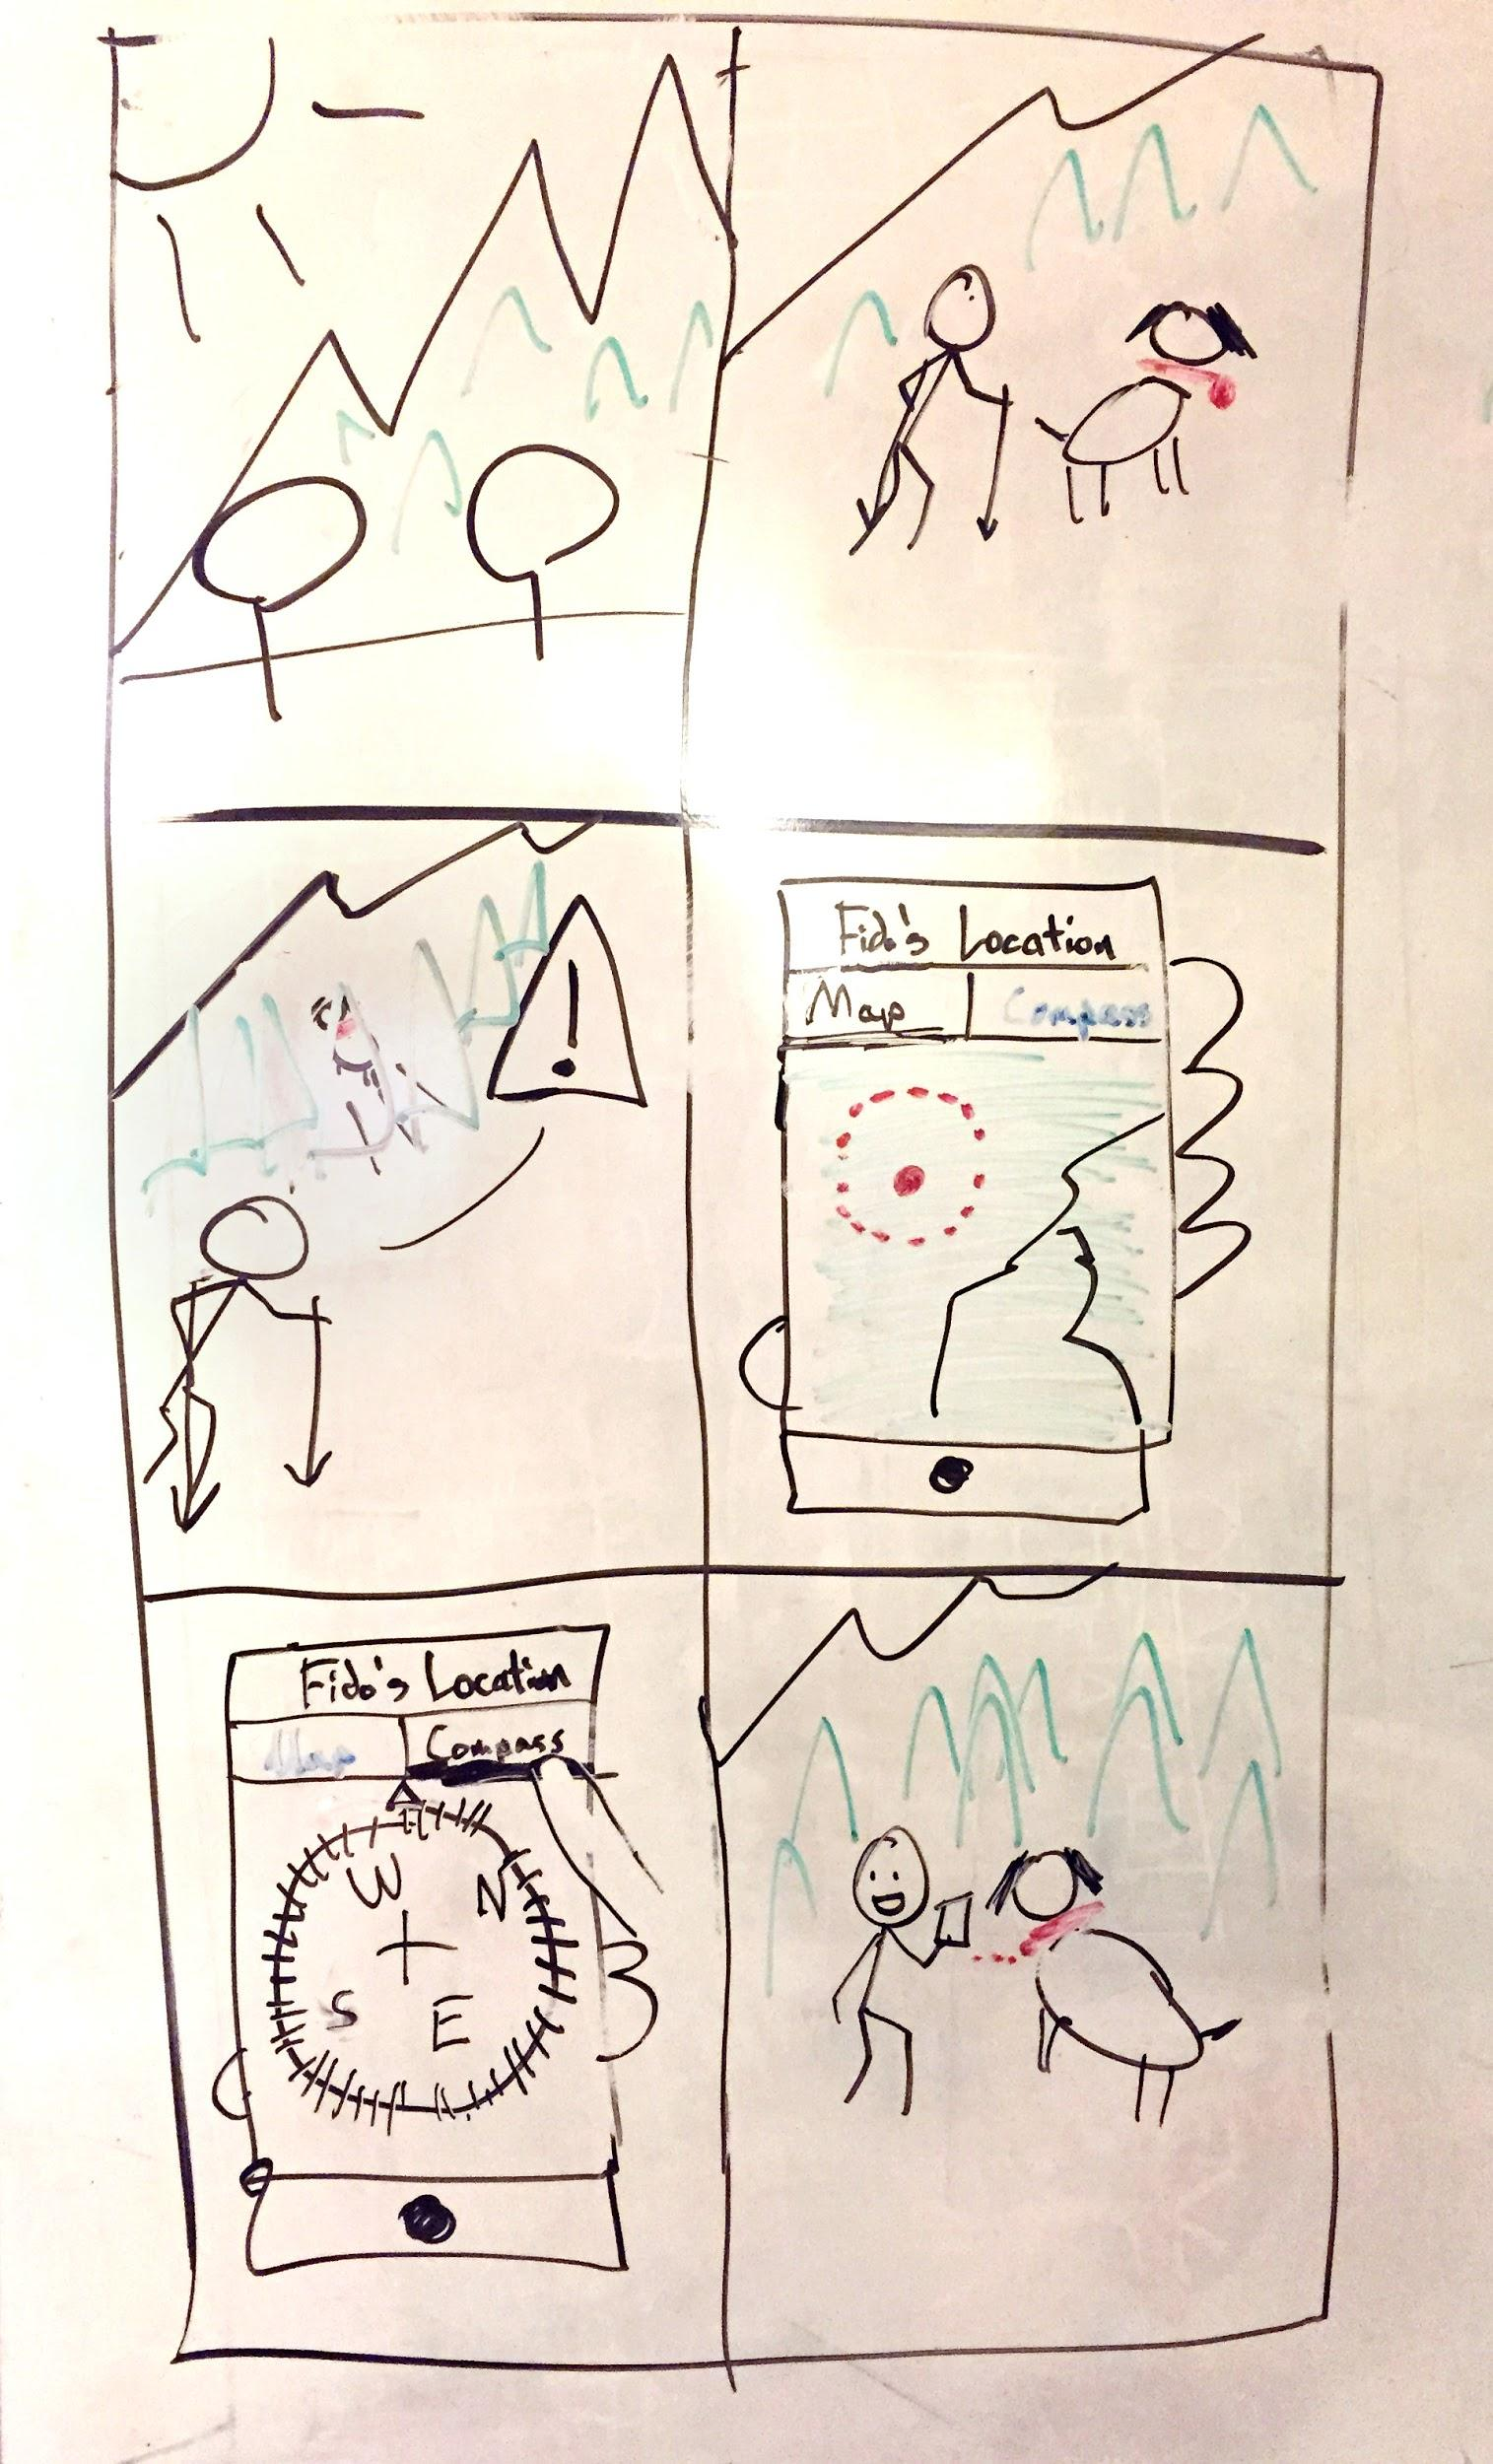 !
Fido's Location
Map | Compass
Fido's Location
Map | Compass
W N
S E